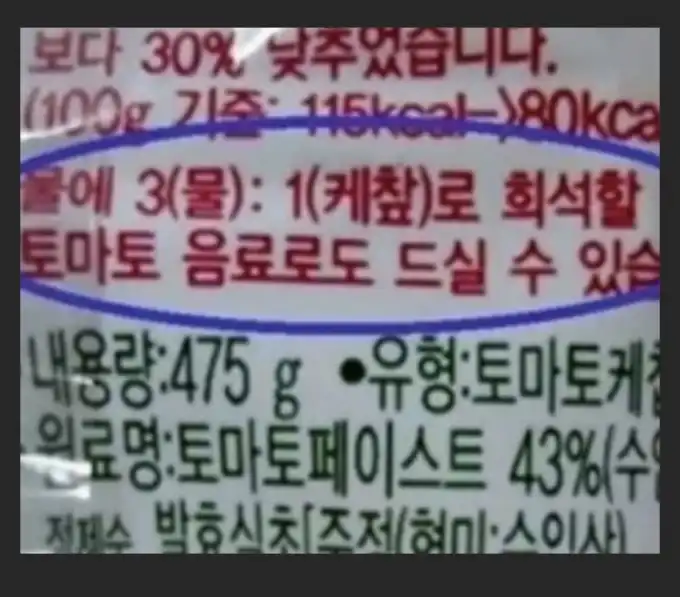 보다 30% 낮추었습니다.
(100g 기준: 115kcal->80kca
물에 3(물): 1(케찹)로 희석할
토마토 음료로도 드실 수 있습
내용량:475 g ●유형:토마토케찹
원료명:토마토페이스트 43%(수
정제수, 발효식초[주정(현미:수입산)